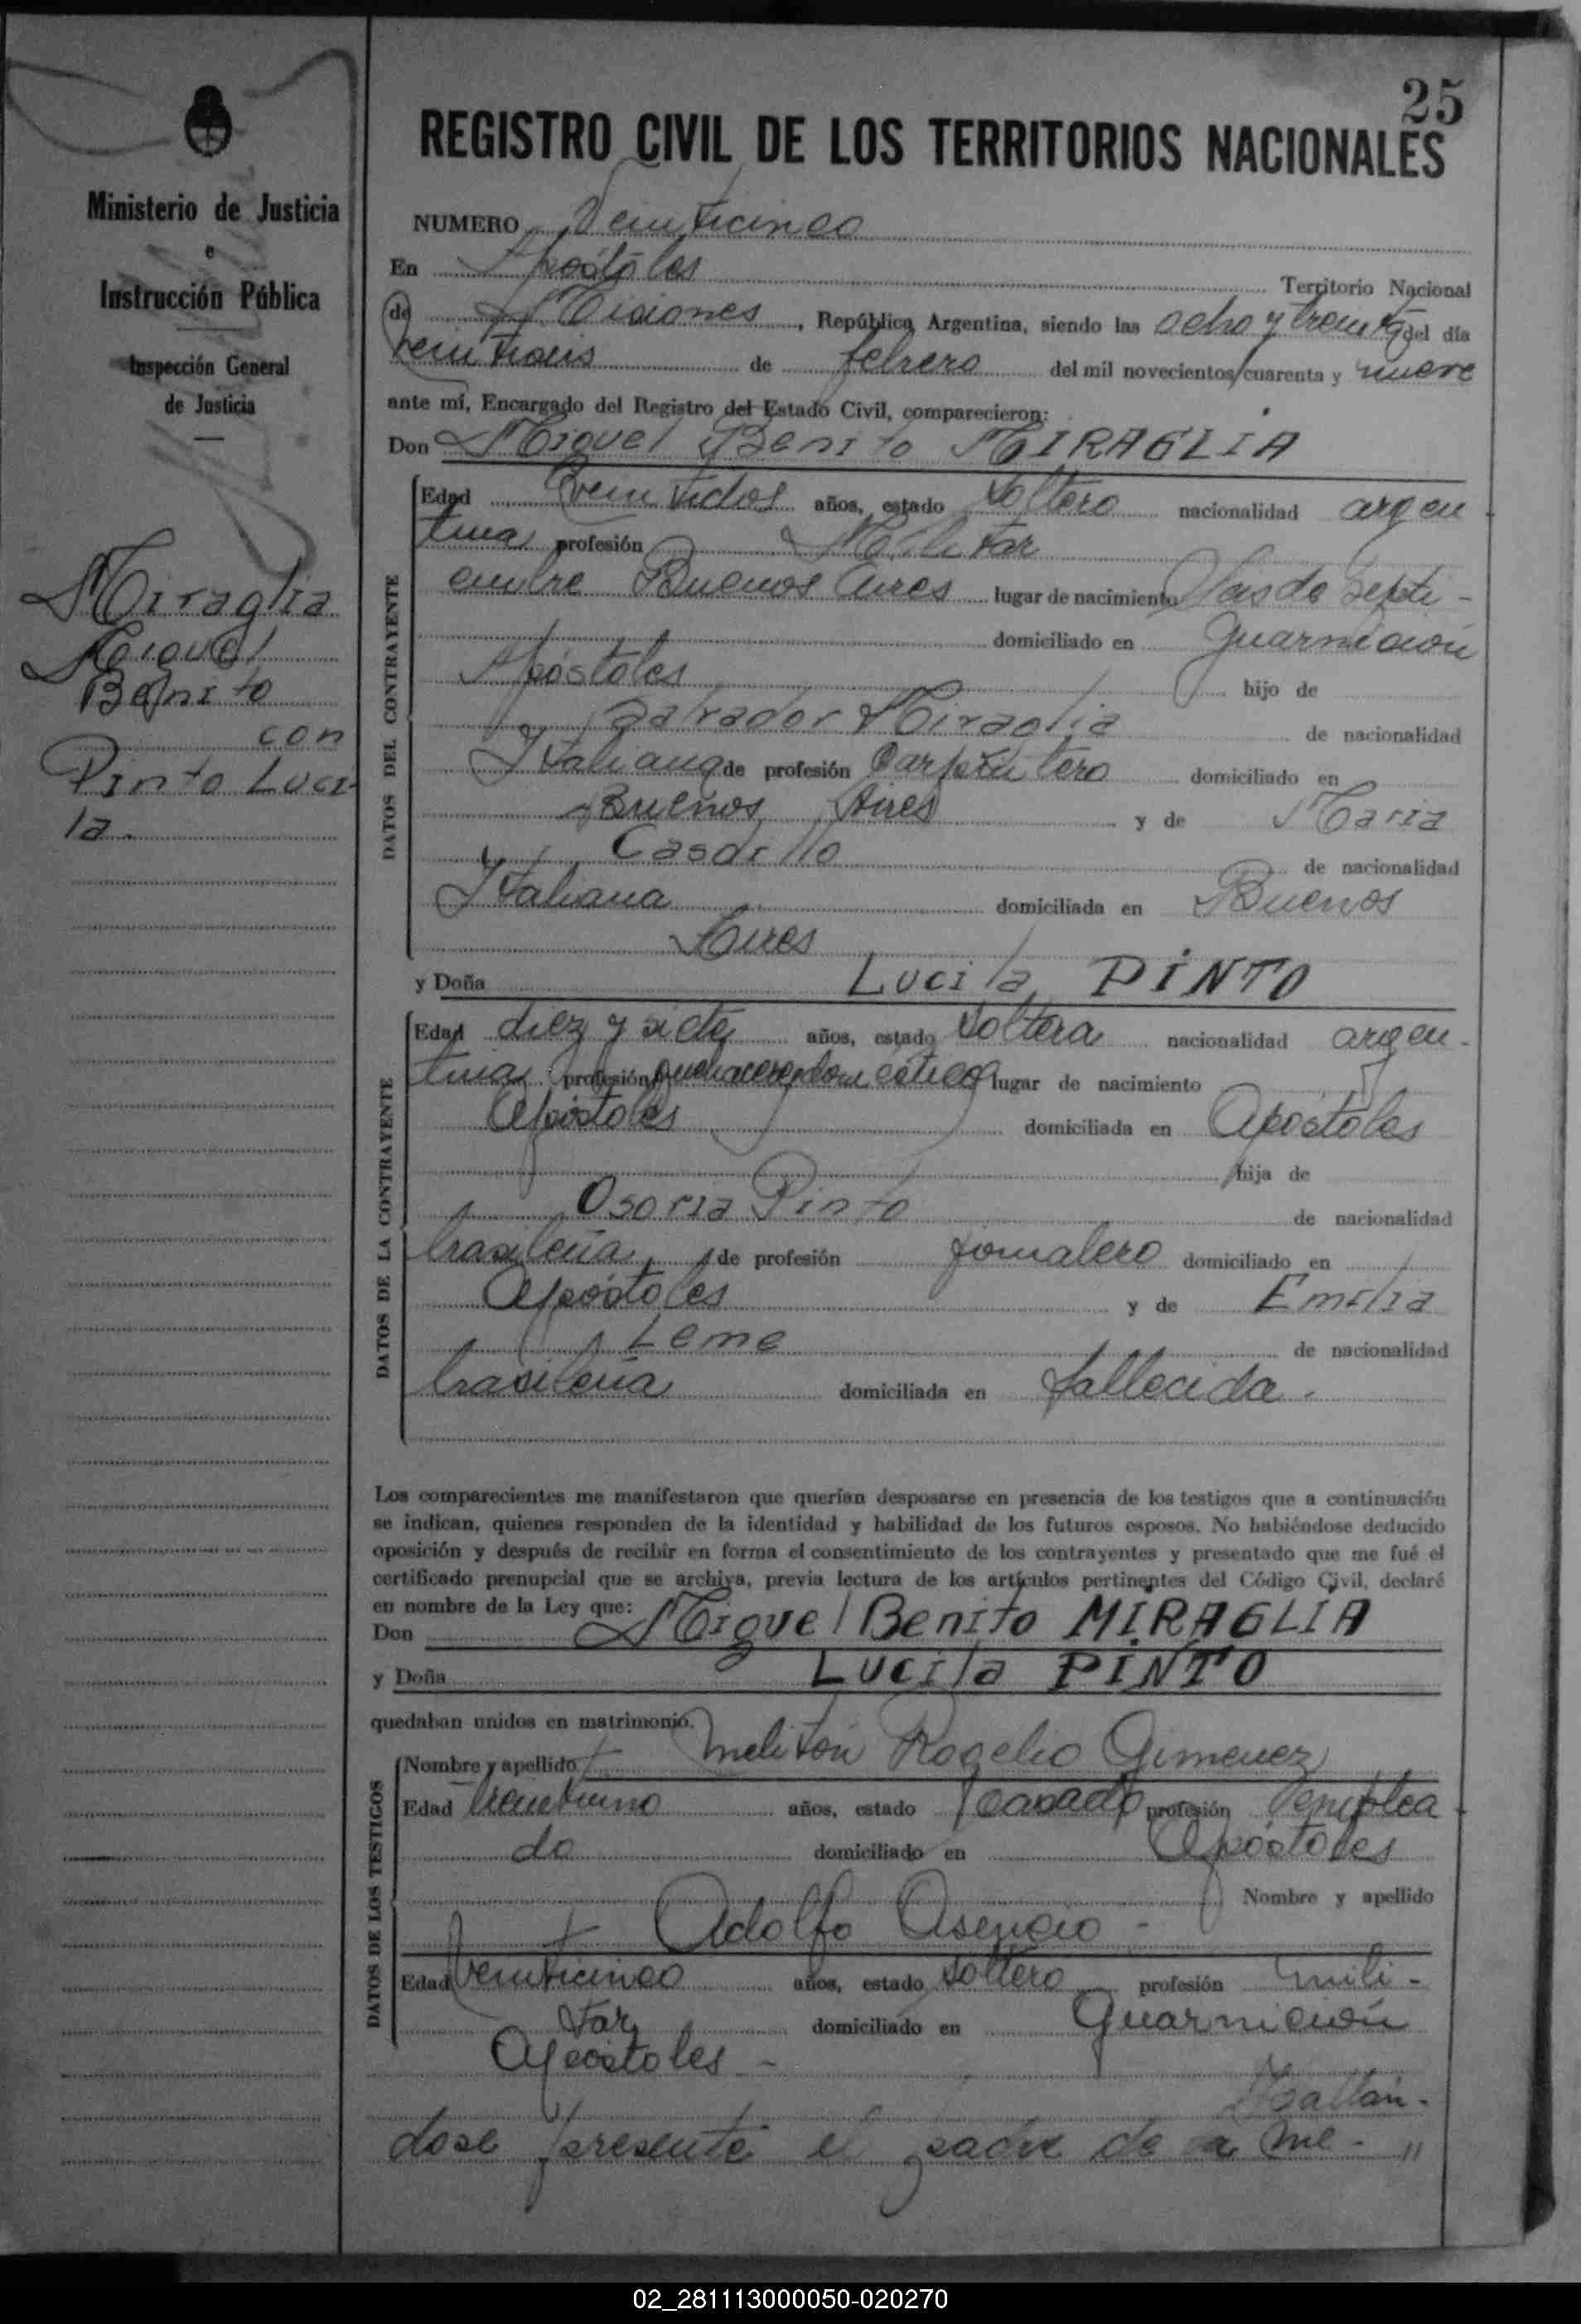 25
REGISTRO CIVIL DE LOS TERRITORIOS NACIONALES
Ministerio de Justicia
e
Instrucción Pública
Inspección General
de Justicia
Miraglia
Miguel
Benito
con
Pinto Luci-
la.
NUMERO Veinticinco
En Apóstoles Territorio Nacional
de Misiones, República Argentina, siendo las ocho y treinta del día
veintiseis de febrero del mil novecientos cuarenta y nueve
ante mí, Encargado del Registro del Estado Civil, comparecieron:
Don Miguel Benito MIRAGLIA
DATOS DEL CONTRAYENTE
Edad veintidos años, estado soltero nacionalidad argen-
tina profesión Militar
embre Buenos Aires lugar de nacimiento Seis de Septi-
domiciliado en Guarnición
Apóstoles hijo de
Salvador Miraglia de nacionalidad
Italiana de profesión Carpintero domiciliado en
Buenos Aires y de Maria
Casdillo de nacionalidad
Italiana domiciliada en Buenos
Aires
y Doña Lucila PINTO
DATOS DE LA CONTRAYENTE
Edad diez y siete años, estado soltera nacionalidad argen-
tina profesión quehaceres domésticos lugar de nacimiento
Apóstoles domiciliada en Apóstoles
hija de
Osoria Pinto de nacionalidad
brasileña de profesión jornalero domiciliado en
Apóstoles y de Emilia
Leme de nacionalidad
brasileña domiciliada en fallecida.
Los comparecientes me manifestaron que querían desposarse en presencia de los testigos que a continuación
se indican, quienes responden de la identidad y habilidad de los futuros esposos. No habiéndose deducido
oposición y después de recibir en forma el consentimiento de los contrayentes y presentado que me fué el
certificado prenupcial que se archiva, previa lectura de los artículos pertinentes del Código Civil, declaré
en nombre de la Ley que:
Don Miguel Benito MIRAGLIA
y Doña Lucila PINTO
quedaban unidos en matrimonio.
DATOS DE LOS TESTIGOS
Nombre y apellido Meliton Rogelio Gimenez
Edad treintiuno años, estado casado profesión emplea-
do domiciliado en Apóstoles
Nombre y apellido
Adolfo Asencio -
Edad veinticinco años, estado soltero profesión mili-
tar domiciliado en Guarnición
Apóstoles -
Hallan-
dose presente el padre de la me- "
02_281113000050-020270